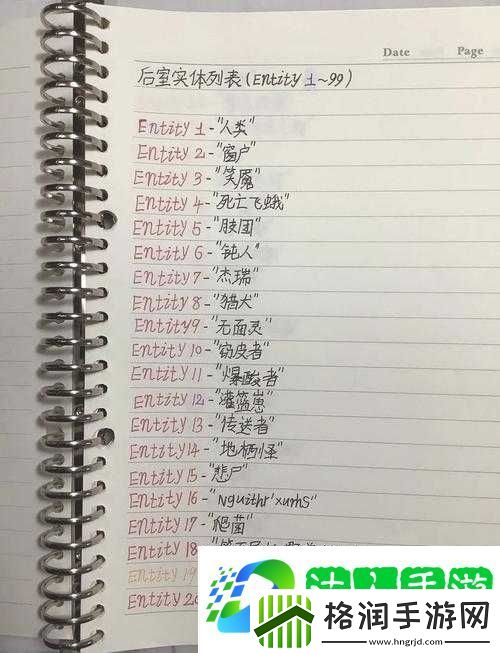 Date Page
后室实体列表(Entity 1~99)
Entity 1-"人类"
Entity 2-"窗户"
Entity 3-"笑魇"
Entity 4-"死亡飞蛾"
Entity 5-"肢团"
Entity 6-"钝人"
Entity 7-"杰瑞"
Entity 8-"猎犬"
Entity 9-"无面灵"
Entity 10-"窃皮者"
Entity 11-"爆酸者"
Entity 12-"灌篮崽"
Entity 13-"传送者"
Entity 14-"地栖怪"
Entity 15-"悲尸"
Entity 16-"Nguithr'xurhS"
Entity 17-"爬菌"
Entity 18-
Entity 19
Entity
格润手游网
www.hngrjd.com